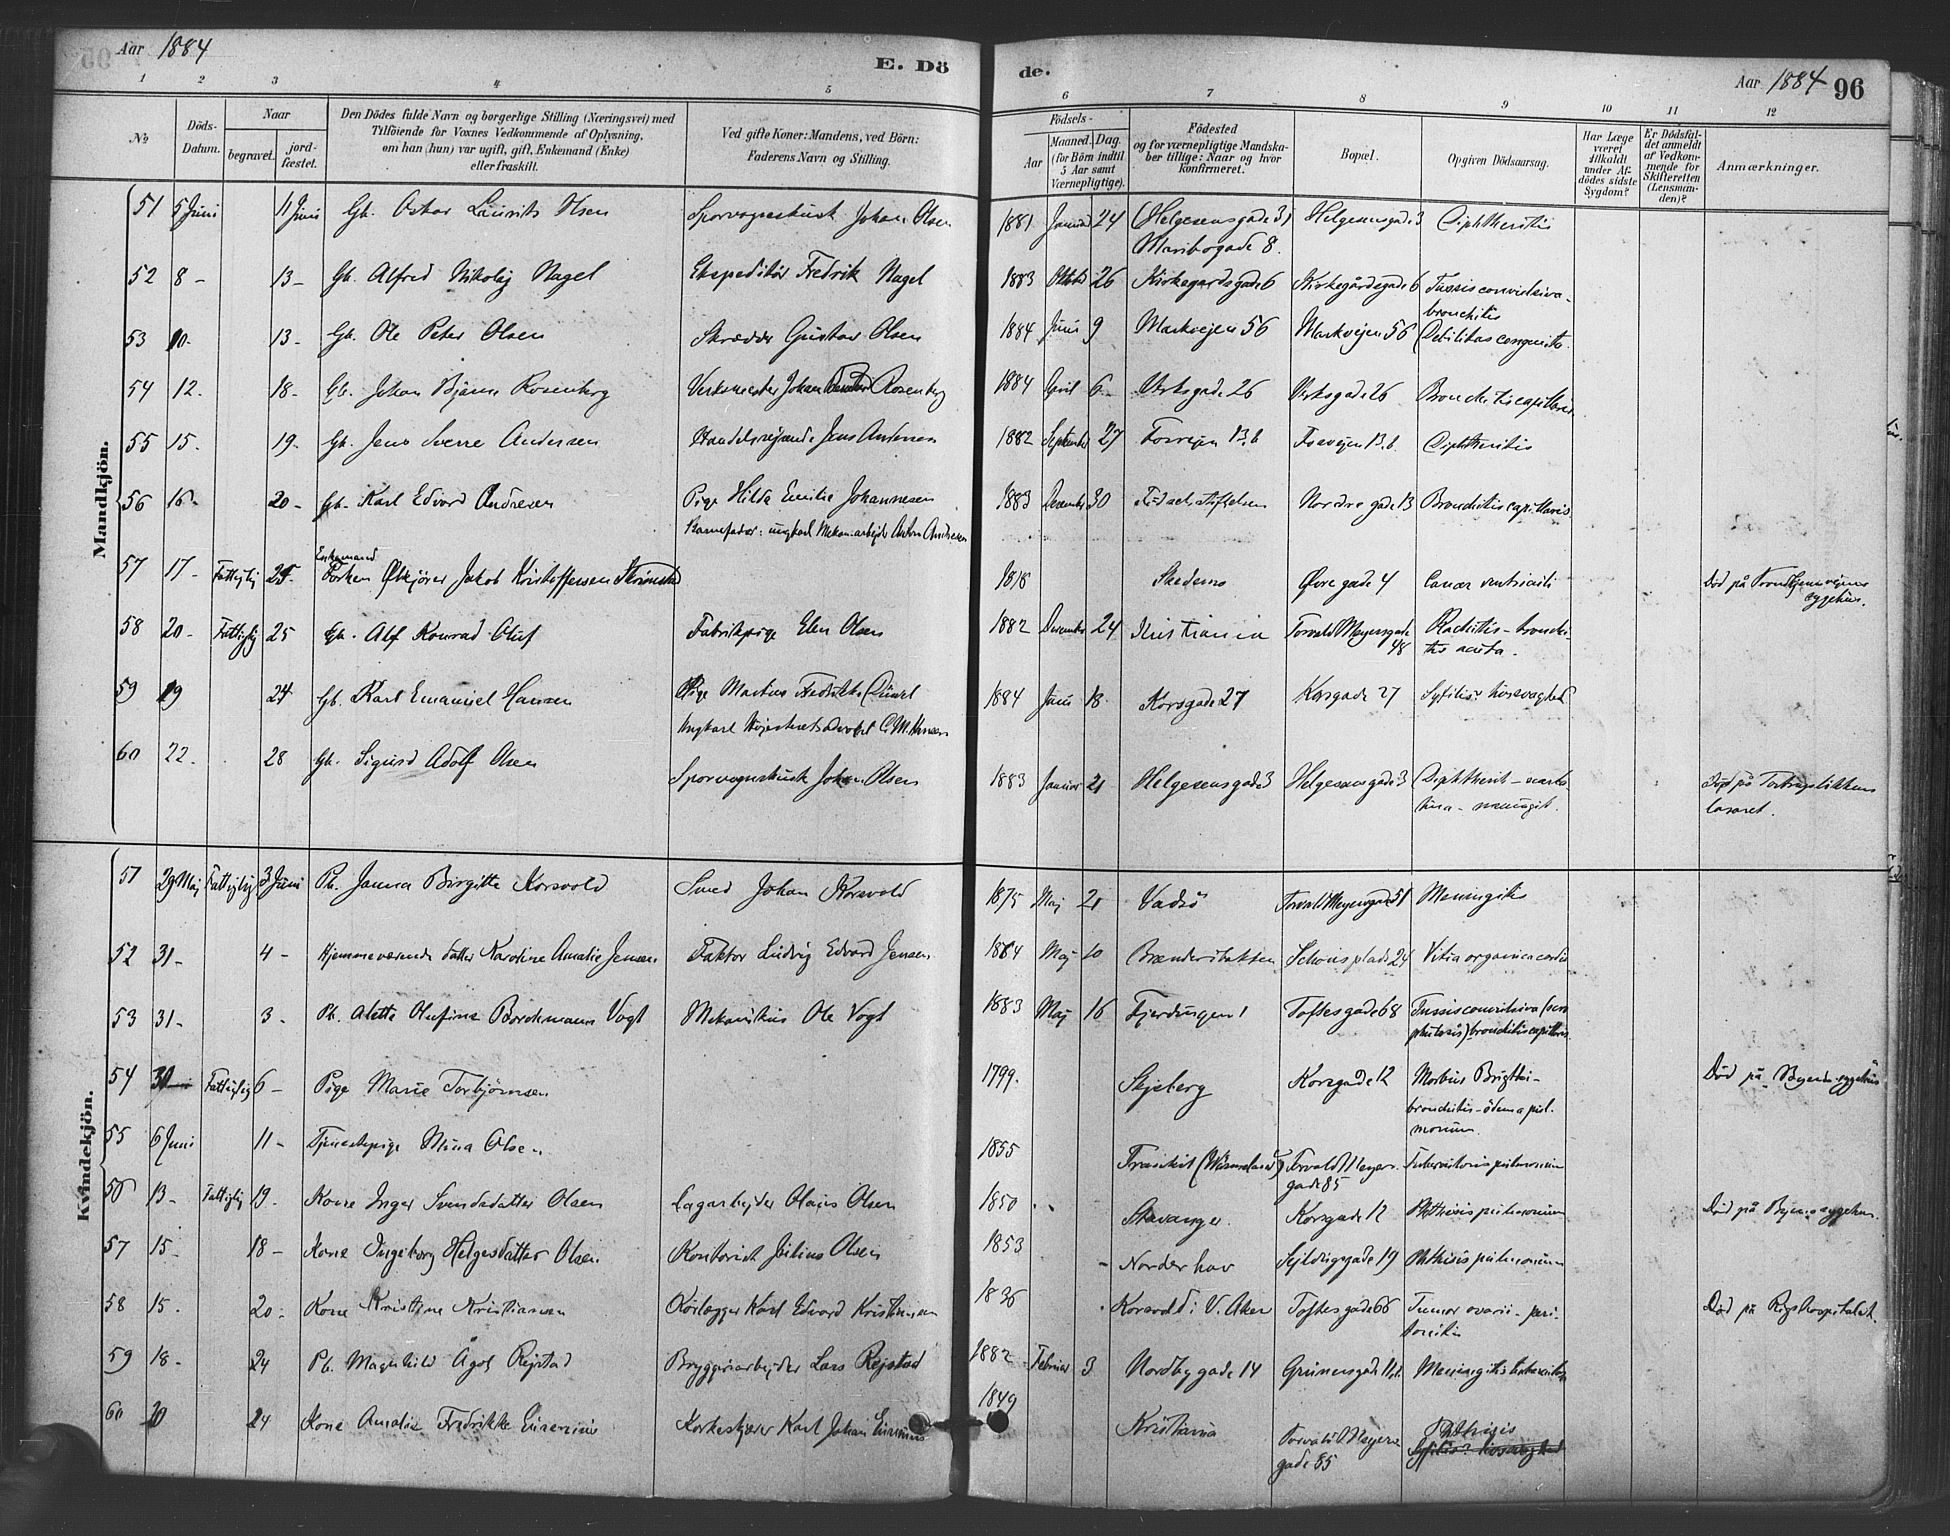 Aar 1884
E. Dö
de.
Aar 1884 96
1 2 3 4 5
6 7 8 9 10 11 12
No
Döds-Datum.
Naar
begravet.
jordfæstet.
Den Dödes fulde Navn og borgerlige Stilling (Næringsvei) med
Tilföiende for Voxnes Vedkommende af Oplysning,
om han (hun) var ugift, gift, Enkemand (Enke)
eller fraskilt.
Ved gifte Koner: Mandens, ved Börn:
Faderens Navn og Stilling.
Födsels-
Aar
Maaned. Dag.
(for Börn indtil
5 Aar samt
Værnepligtige).
Födested
og for værnepligtige Mandska-
ber tillige: Naar og hvor
konfirmeret.
Bopæl.
Opgiven Dödsaarsag.
Har Læge
været
tilkaldt
under Af-
dödes sidste
Sygdom?
Er Dödsfal-
det anmeldt
af Vedkom-
mende for
Skifteretten
(Lensman-
den)?
Anmærkninger.
Mandkjön.
51 5 Juni 11 Juni Gb. Oskar Laurits Olsen Sporvognskusk Johan Olsen 1881 Januar 24 (Helgesensgade 3) Helgesensgade 3 Diphtheritis
Maribogade 8.
52 8 - 13 - Gb. Alfred Nikolaj Nagel Ekspeditör Fredrik Nagel 1883 Oktober 26 Kirkegardsgade 6 Kirkegårdsgade 6 Tussis convulsiva -
bronchitis
53 10 - 13 - Gb. Ole Peter Olsen Skrædder Gustav Olsen 1884 Juni 9 Markvejen 56 Markvejen 56 Debilitas congenita
54 12. 18 - Gb. Johan Bjarne Rosenberg Verksmester Johan Rosenberg 1884 April 6 Verksgade 26 Verksgade 26 Bronchitis capillaris
55 15. 19. Gb. Jens Sverre Andersen Handelsrejsende Jens Andersen 1882 September 27 Fosvejen 13. b Fosvejen 13. b. Diphtheritis
56 16 - 20 - Gb. Karl Edvard Andresen Pige Hilda Emilie Johannesen 1883 December 30 Födselsstiftelsen Nordre gade 13 Bronchitis capillaris
Barnefader: ungkarl Mekan. arbejder Anton Andresen
Enkemand
57 17 - Fattiglig 25. Jakob Kristoffersen 1818 Skedsmo Øvre gade 4 Cancer ventriculi Död på Trondhjemsvejens
sygehus.
58 20 - Fattiglig 25 Gb. Alf Konrad Oluf Fabrikpige Elen Olsen 1882 December 24 Kristiania Torvald Meyersgade Rachitis - bronchi-
48 tis acuta.
59 19 24 Gb. Karl Emanuel Hansen Pige Martine Fredrikke 1884 Juni 18 Korsgade 27 Korsgade 27 Syfilis?
Ungkarl Höjesteretsadvokat C. M. Hansen
60 22. 28 Gb. Sigurd Adolf Olsen Sporvognskusk Johan Olsen 1883 Januar 21 Helgesensgade 3 Helgesensgade 3 Diphtherit - scarla-
tina - meningit. Död på
lasaret.
Kvindekjön.
51 29 Maj Fattiglig 3 Juni Pb. Janna Birgitte Korsvold Smed Johan Korsvold 1875 Maj 21 Vadsö Torvald Meyersgade 51 Meningitis
52 31 - 4 - Hjemmeværende datter Karoline Amalie Jensen Faktor Ludvig Edvard Jensen 1864 Maj 10 Brænderibakken Schous plads 24 Vitia organica cordis
53 31 - 3 - Pb. Alette Olufine Borchmann Vogt Mekanikus Ole Vogt 1883 Maj 16 Fjerdingen 1 Toftesgade 68 Tussis convulsiva
bronchitis capillaris
54 30 Fattiglig 6 - Pige Marie Torbjörnsen 1799. Skjeberg Korsgade 12 Morbus Brigthi - Död på Byens sygehus
bronchitis - ödema pul-
monum
55 6 Juni 11 - Tjenestepige Mina Olsen 1855 (Wärmeland) Torvald Meyers-
gade 85 Tuberculosis pulmonum
56 13 - Fattiglig 19. Kone Inger Svendsdatter Olsen Olaus Olsen 1850 Stavanger. Korsgade 12 Phthisis pulmonum Död på Byens sygehus.
57 15 - 18 - Kone Ingeborg Helgesdatter Olsen Kontorist Julius Olsen 1853 Norderhov Sejldugsgade 19 Phthisis pulmonum
58 15. 20 - Kone Kristine Kristiansen Rörlægger Karl Edvard Kristiansen 1836 Korsvold i V. Aker Toftesgade 66 Tumor ovarii - peri- Död på Rigshospitalet.
tonitis
59 18 - 24 Pb. Magnhild Ågot Rejstad Bryggeriarbejder Lars Rejstad 1882 Februar 3 Nordby gade 14 Grünersgade 11 Meningitis tuberculosa
60 20 24 Kone Amalie Fredrikke Korkeskjærer Karl Johan 1849 Kristiania Torvald Meyers
gade 85 Phthisis